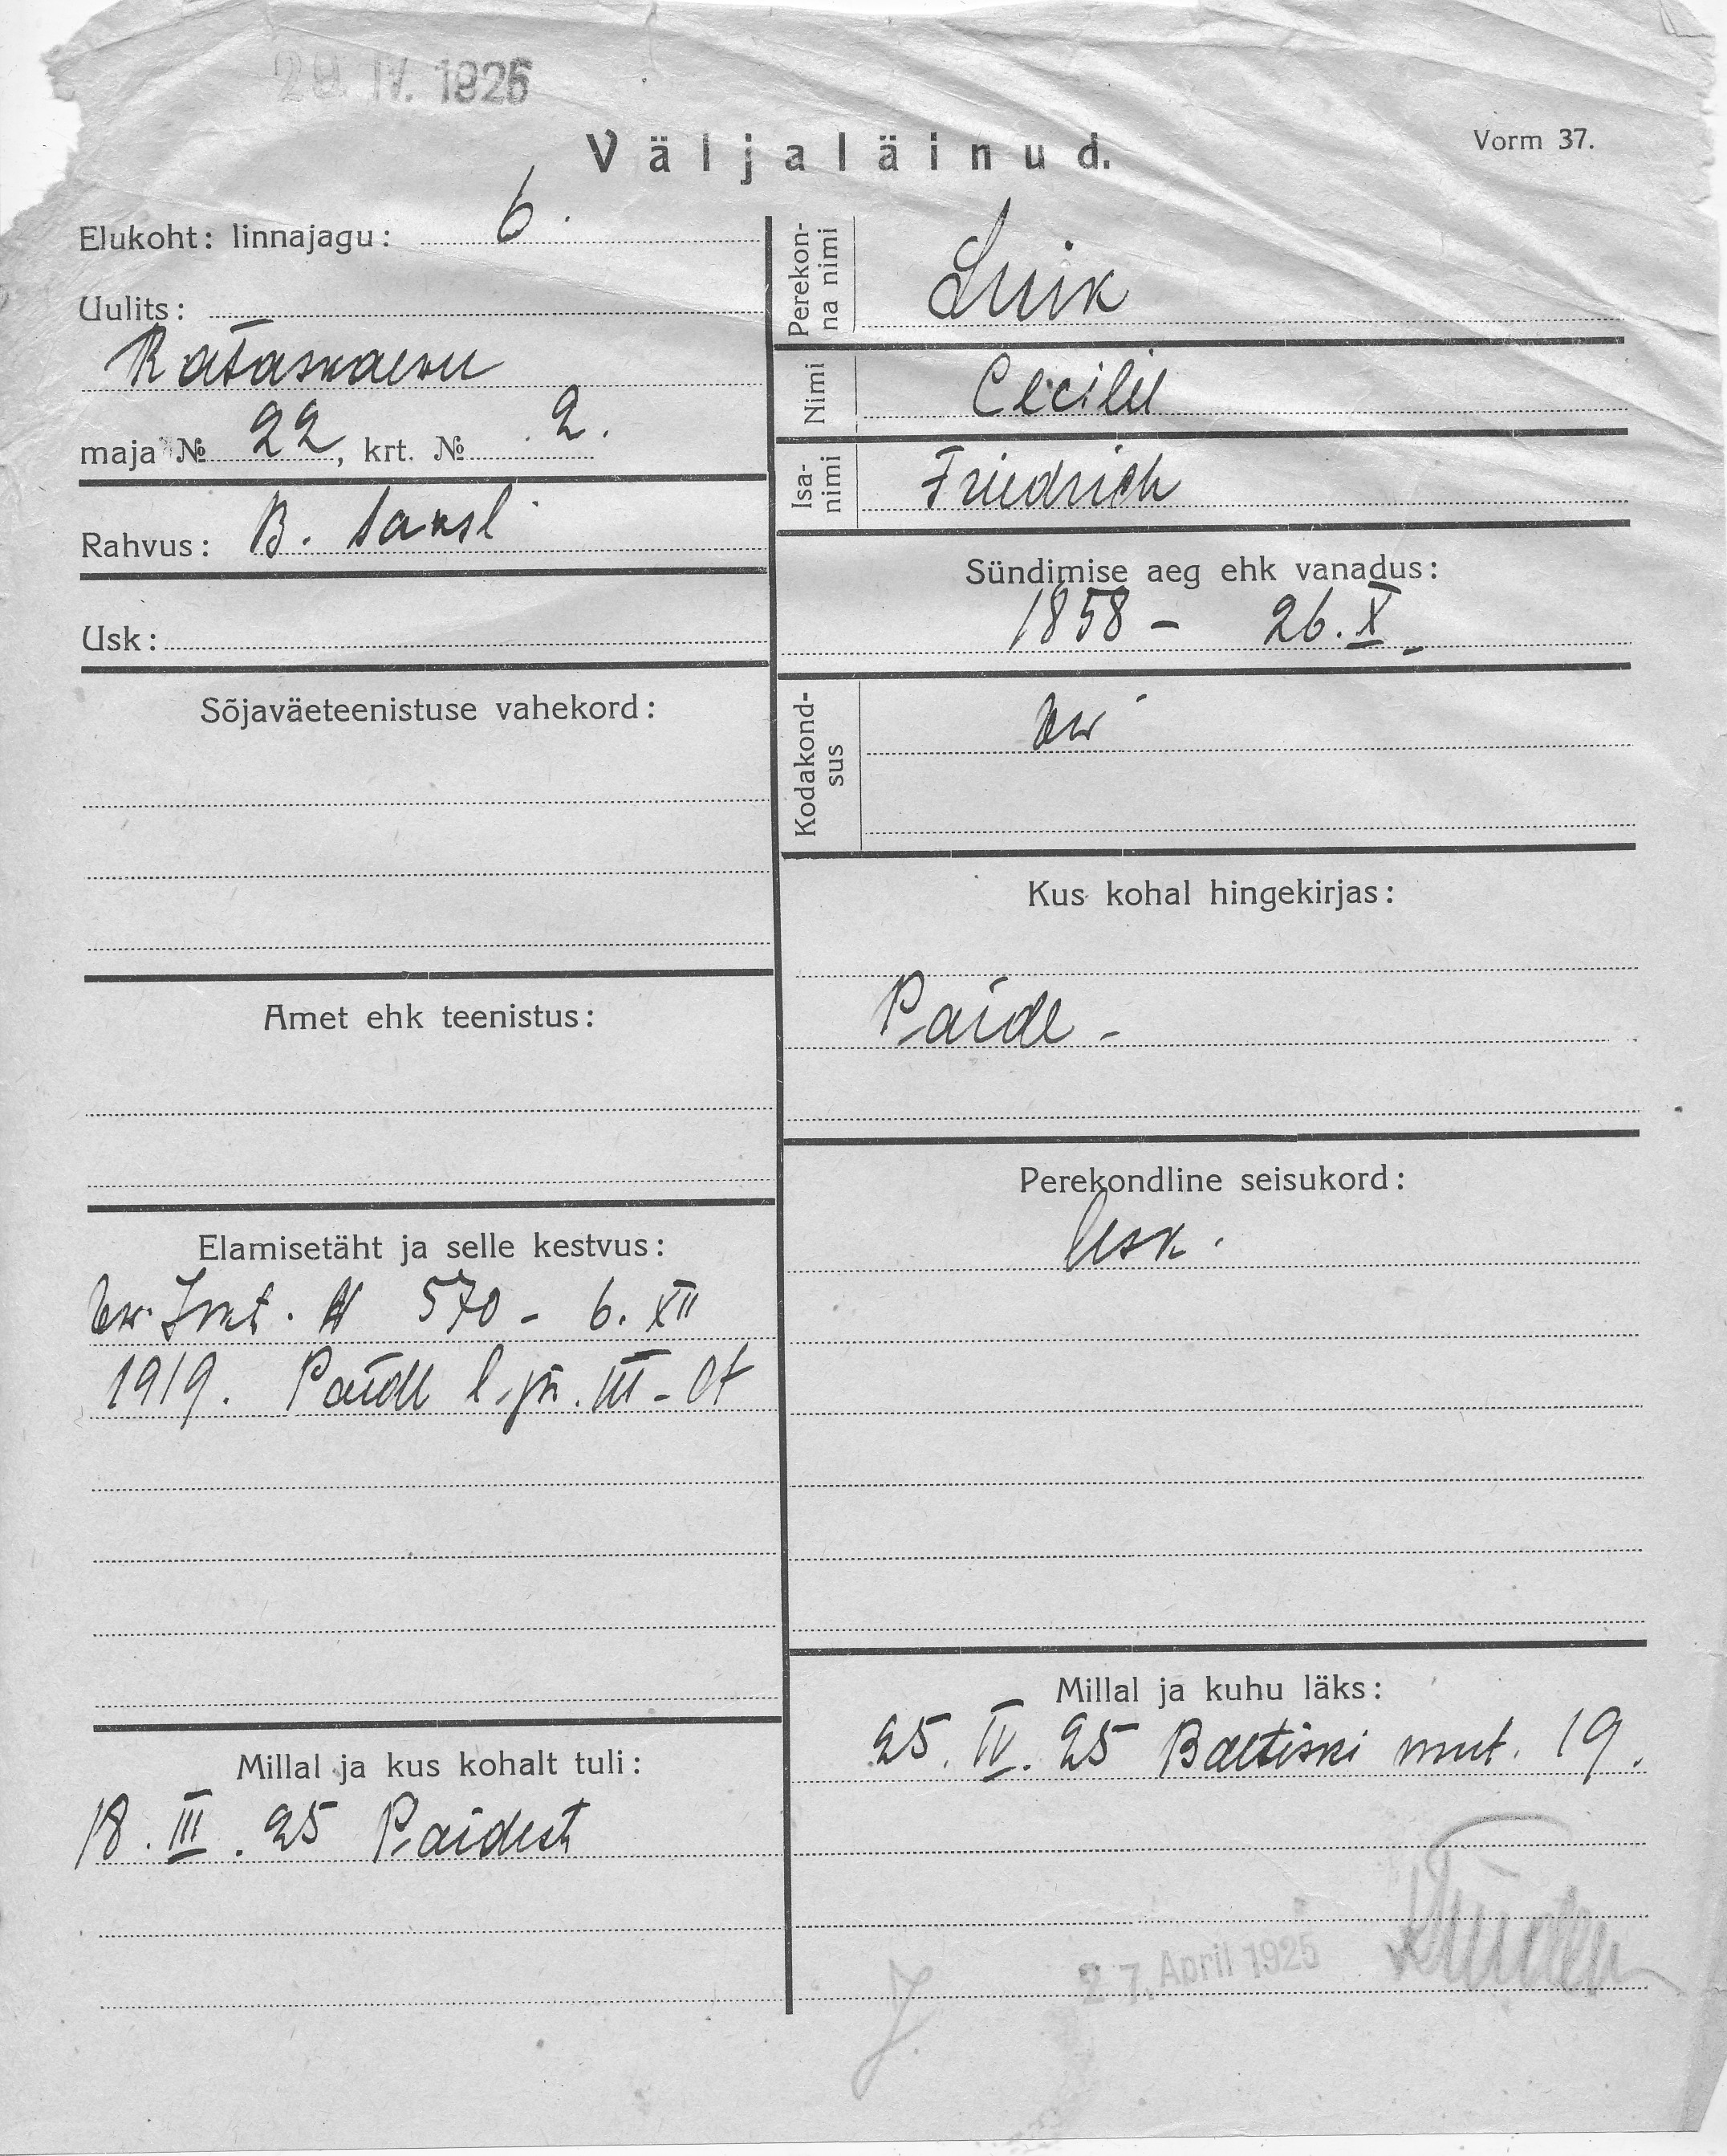 29. IV. 1925
Väljaläinud.
Vorm 37.
Elukoht: linnajagu: 6.
Uulits:
Rataskaevu
maja № 22, krt. № 2.
Rahvus: B. saksl
Usk:
Sõjaväeteenistuse vahekord:
Amet ehk teenistus:
Elamisetäht ja selle kestvus:
№ 570 - 6. XII
1919. Paide l. III
Millal ja kus kohalt tuli:
18. III. 25 Paidest
Perekon-
na nimi
Luik
Nimi
Cecilie
Isa-
nimi
Friedrich
Sündimise aeg ehk vanadus:
1858 - 26. X.
Kodakond-
sus
Kus kohal hingekirjas:
Paide -
Perekondline seisukord:
lesk.
Millal ja kuhu läks:
25. IV. 25 Baltiski mnt. 19.
27. April 1925